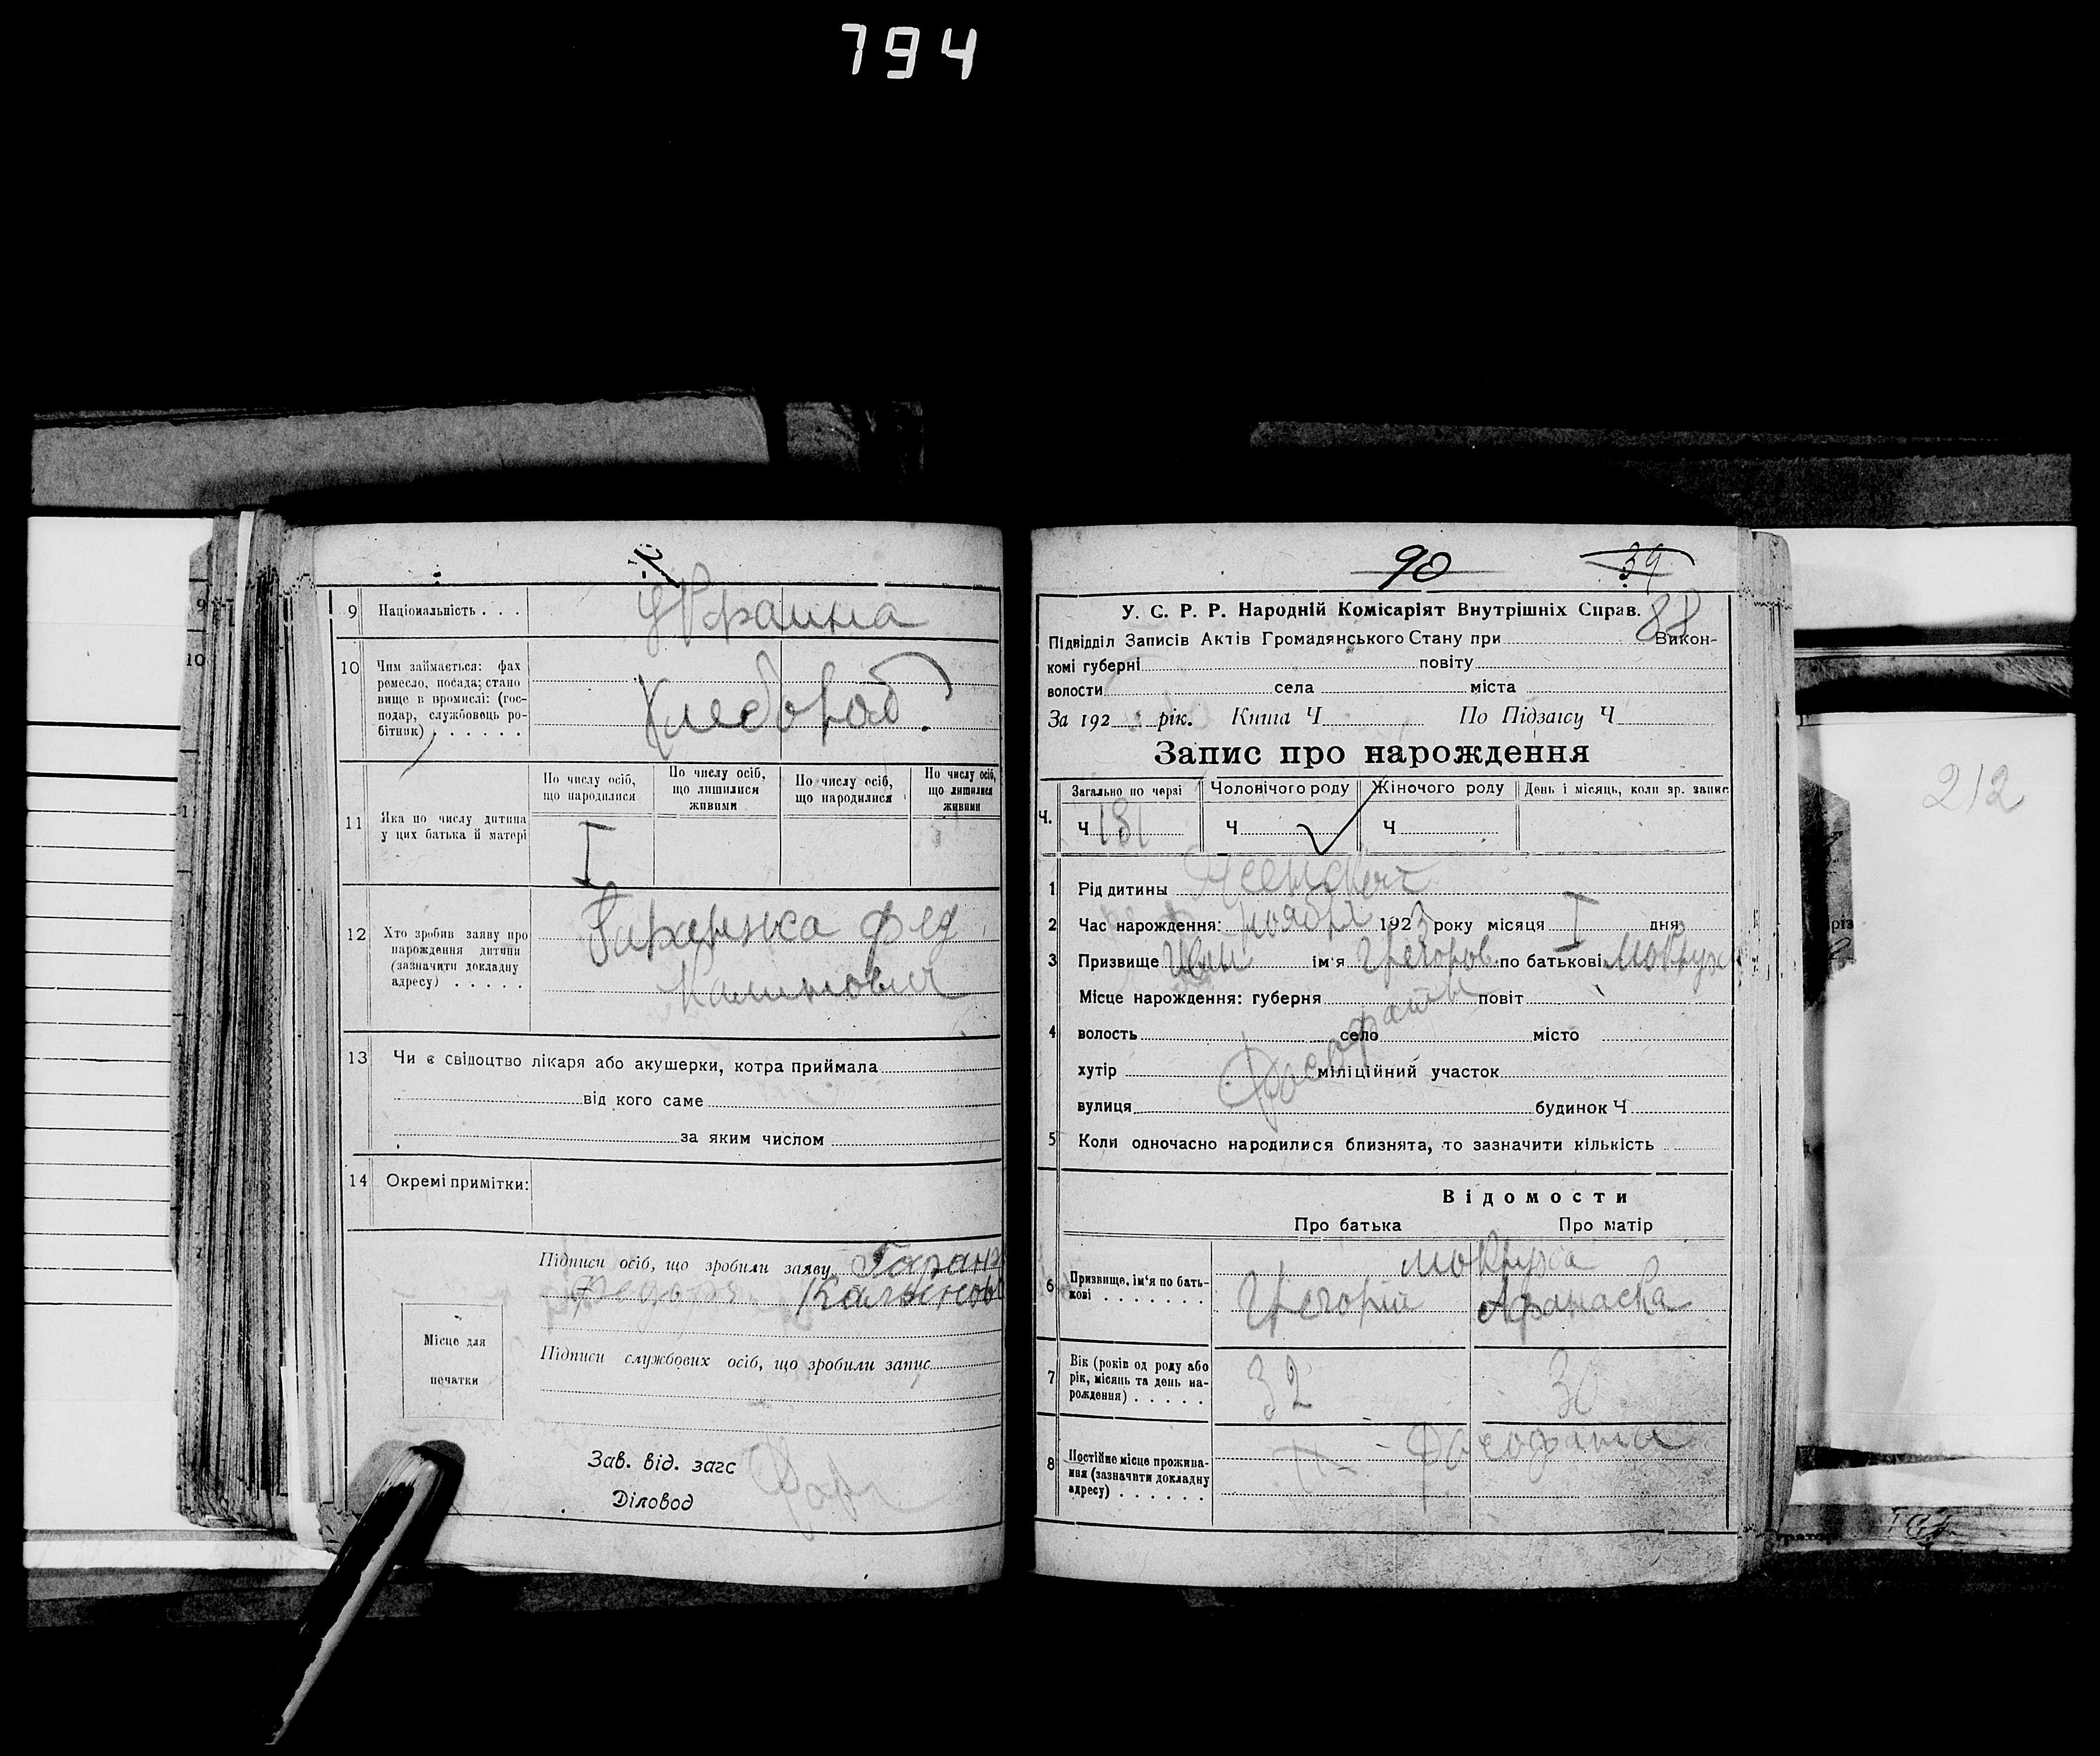 794
9 Національність . . .
Украина
10 Чим займається: фах
ремесло, посада; стано
вище в промислі: (гос-
подар, службовець ро-
бітник) . . . . . .
Хлебороб
11 Яка по числу дитина
у цих батька й матері
По числу осіб,
що народилися
По числу осіб,
що лишилися
живими
По числу осіб,
що народилися
По числу осіб,
що лишилися
живими
I
12 Хто зробив заяву про
нарождення дитини
(зазначити докладну
адресу) . . . . .
Фед
Калинович
13 Чи є свідоцтво лікаря або акушерки, котра приймала
від кого саме
за яким числом
14 Окремі примітки:
Підписи осіб, що зробили заяву
Федоръ
Місце для
печатки
Підписи службових осіб, що зробили запис
Зав. від. загс
Діловод
90
39
88
У. С. Р. Р. Народній Комісаріят Внутрішніх Справ.
Підвідділ Записів Актів Громадянського Стану при Викон-
комі губерні повіту
волости села міста
За 192 рік. Книга Ч По Підзагсу Ч
Запис про нарождення
Ч. Загально по черзі Чоловічого роду Жіночого роду День і місяць, коли зр. запис
Ч 181 Ч Ч
1 Рід дитины
2 Час нарождення: ноября 1923 року місяця I дня
3 Призвище Иван ім'я Григоров по батькові Мокрух
Місце нарождення: губерня повіт
4 волость село місто
хутір міліційний участок
вулиця будинок Ч
5 Коли одночасно народилися близнята, то зазначити кількість
Відомости
Про батька Про матір
6 Призвище, ім'я по бать-
кові . . . . . . .
Мокруха
Григорий
7 Вік (років од роду або
рік, місяць та день на-
рождення) . . . . .
32 30
8 Постійне місце прожива-
ння (зазначити докладну
адресу) . . . . . .
212